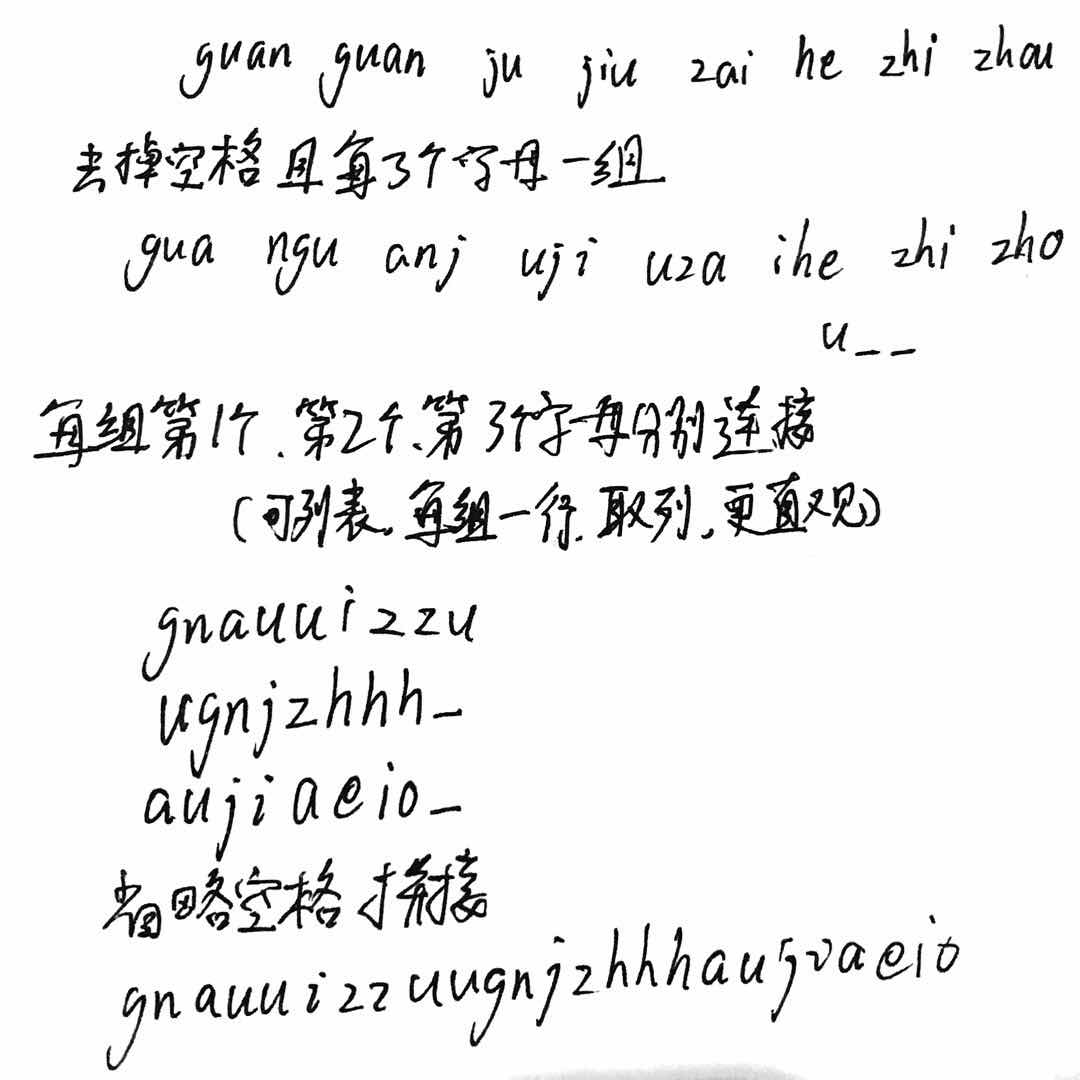 guan guan ju jiu zai he zhi zhou
去掉空格且每3个字母一组
gua ngu anj uji uza ihe zhi zho
u__
每组第1个、第2个、第3个字母分别连接
(可列表,每组一行,取列,更直观)
gnauuizzu
ugnjzhhh_
aujiaeio_
省略空格拼接
gnauuizzuugnjzhhhaujiaeio